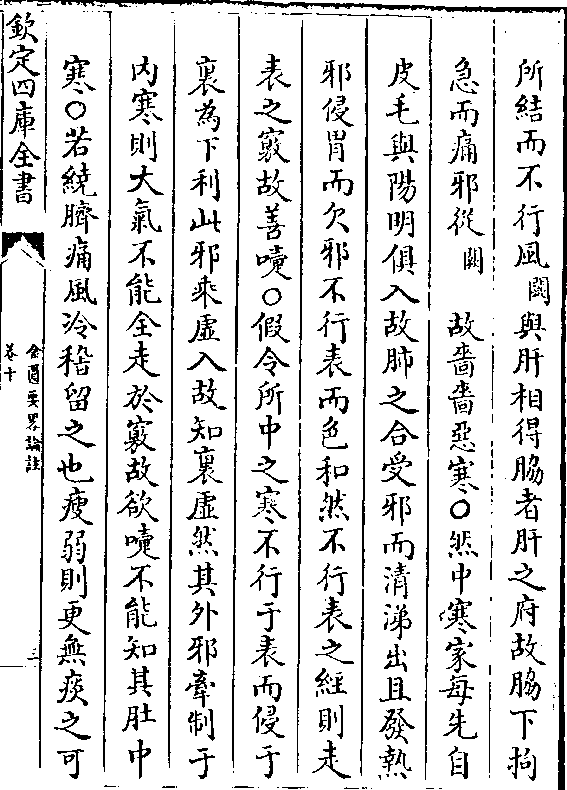 所結而不行風闕與肝相得脇者肝之府故脇下拘
急而痛邪從闕　故嗇嗇惡寒○然中寒家每先自
皮毛與陽明俱入故肺之合受邪而清涕出且發熱
邪侵胃而欠邪不行表而色和然不行表之經則走
表之竅故善嚏○假令所中之寒不行于表而侵于
裏為下利此邪乘虛入故知裏虛然其外邪牽制于
內寒則大氣不能全走於竅故欲嚏不能知其肚中
寒○若繞臍痛風冷稽留之也瘦弱則更無痰之可
欽定四庫全書
金匱要畧論註
卷十
三